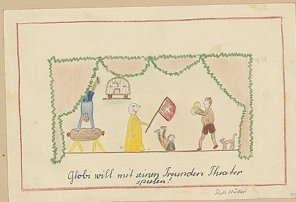 Globi will mit seinen Freunden Theater
spielen!
Ruth Müller